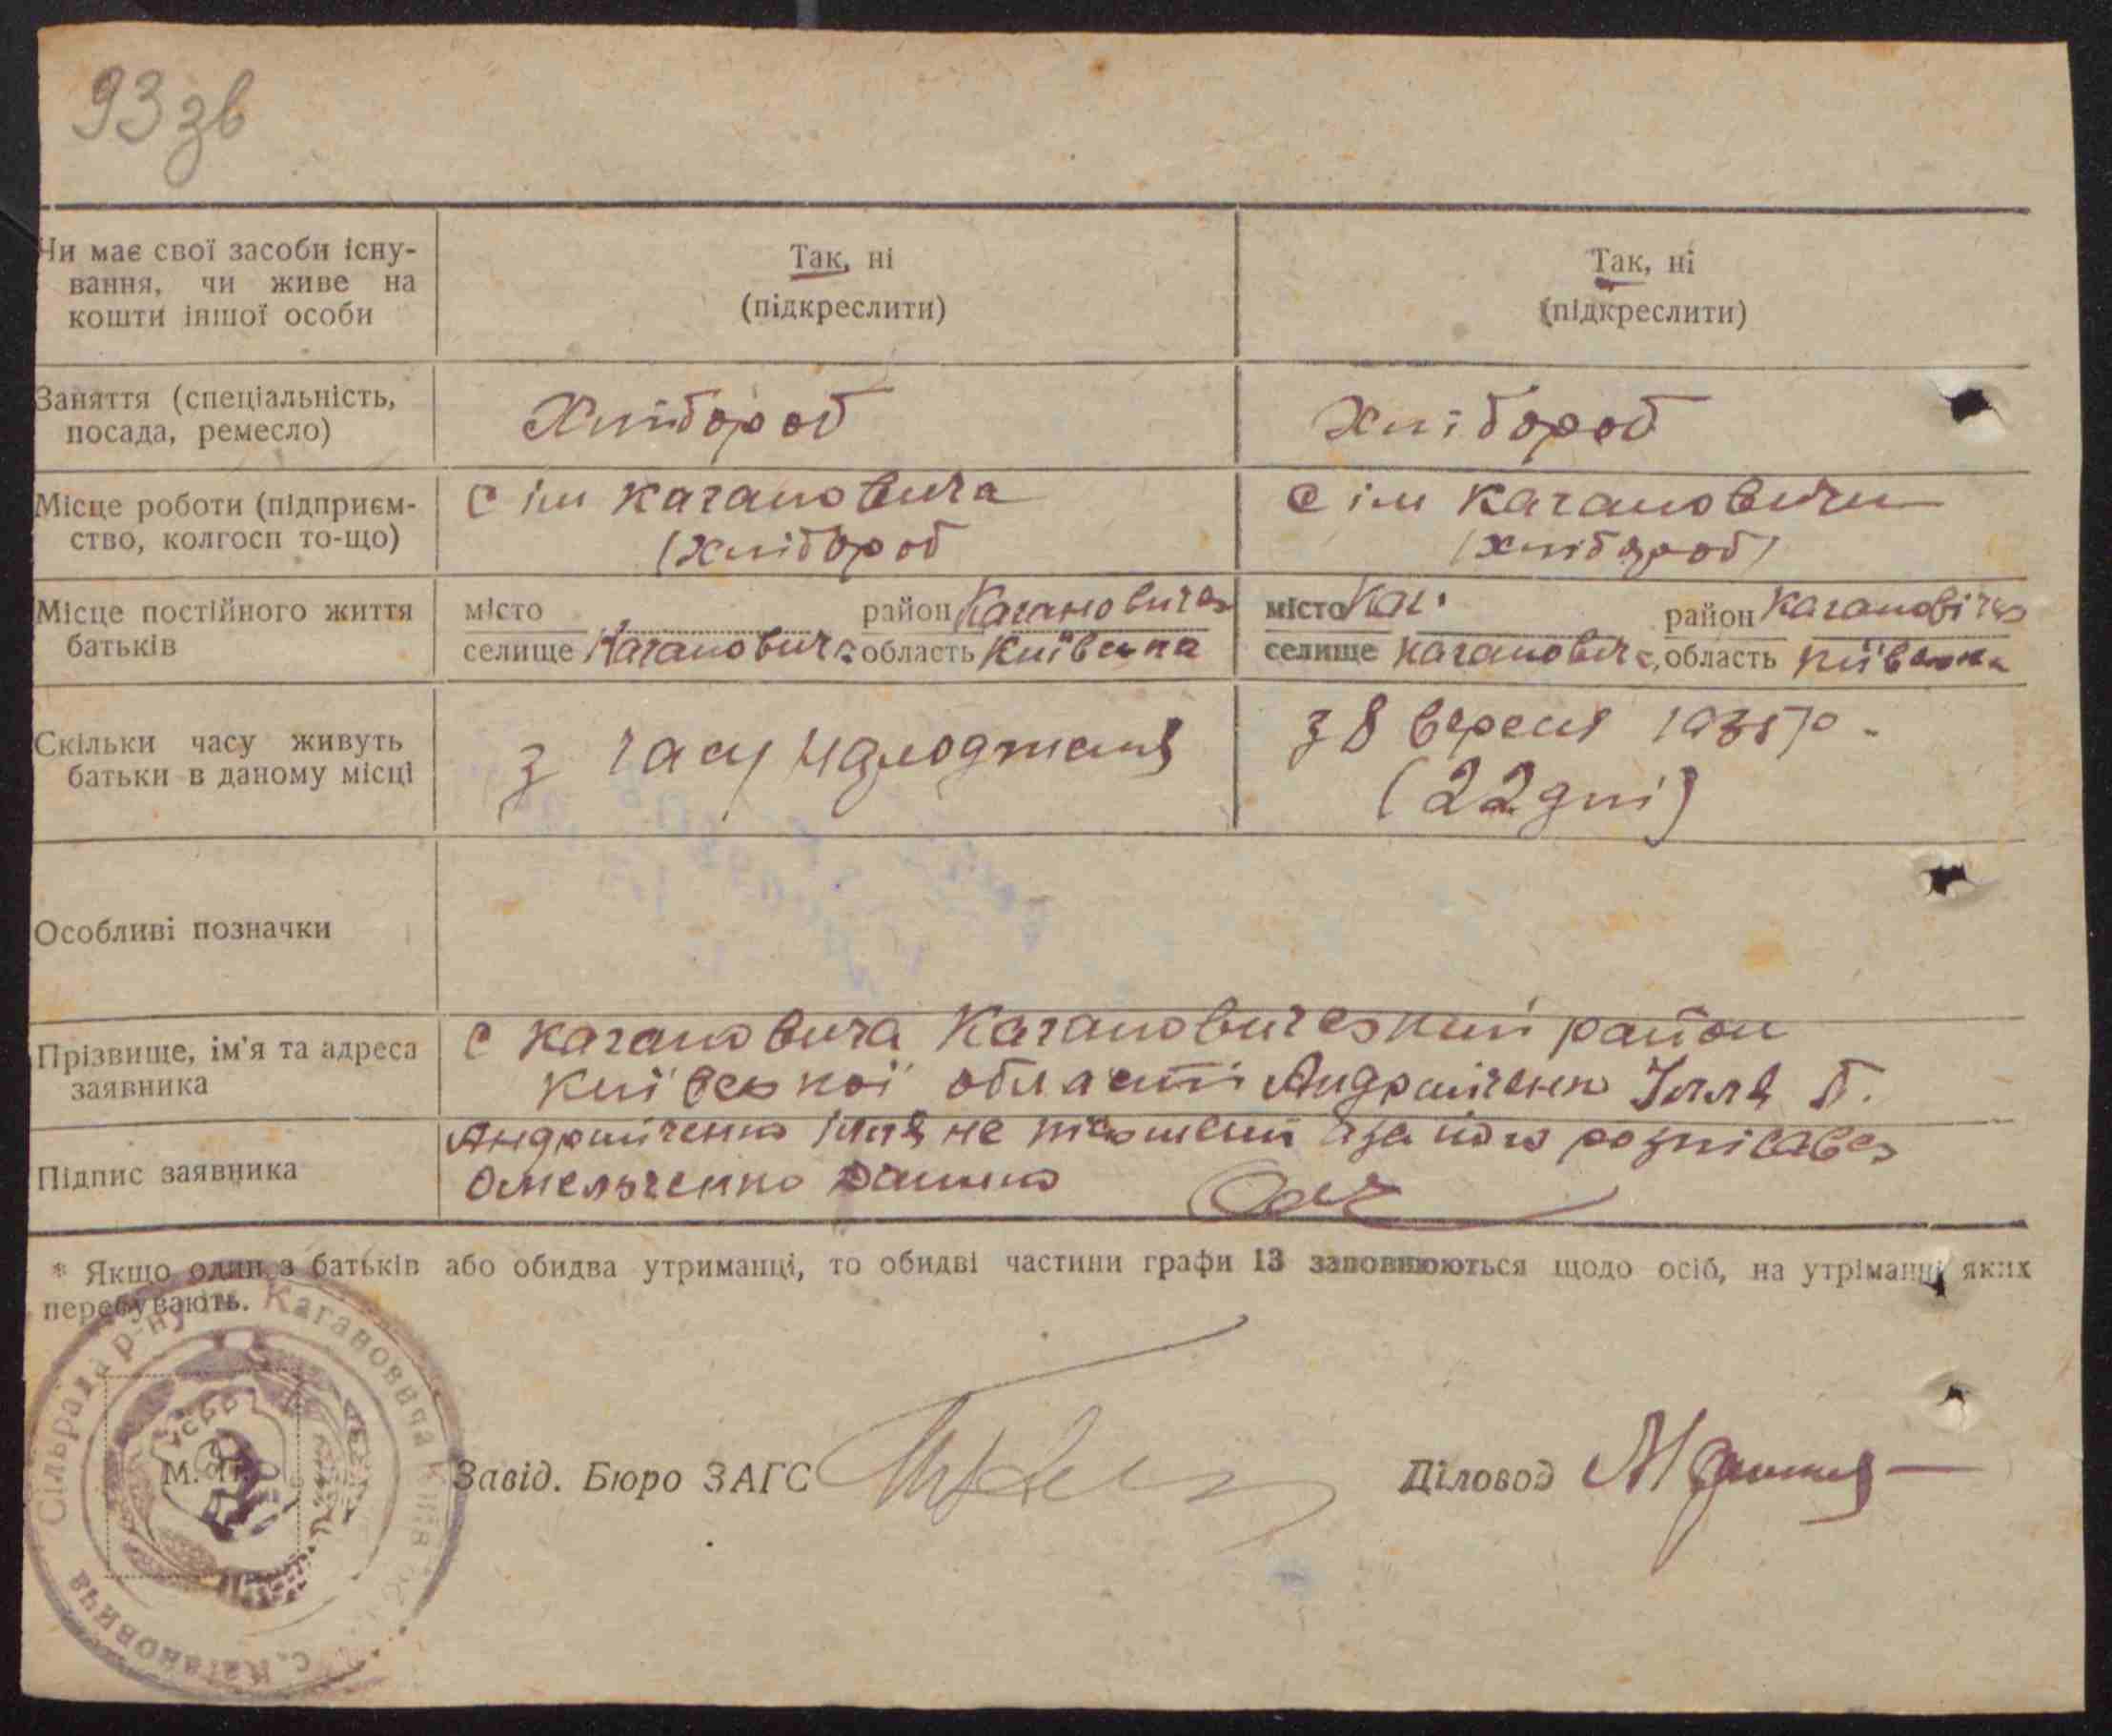 93 зв
Чи має свої засоби існу-
вання, чи живе на
кошти іншої особи
Так, ні
(підкреслити)
Так, ні
(підкреслити)
Заняття (спеціальність,
посада, ремесло)
Хлібороб
Хлібороб
Місце роботи (підприєм-
ство, колгосп то-що)
с ім Кагановича
(Хлібороб
с ім Кагановичи
(хлібороб)
Місце постійного життя
батьків
місто район Кагановичез
селище Кагановича область Київська
місто Каг. район Каганові
селище Кагановича, область Київська
Скільки часу живуть
батьки в даному місці
з часу
з 8 вересня 1935 р.
(22 дні)
Особливі позначки
Прізвище, ім'я та адреса
заявника
с Кагановича Кагановичезкий район
Київської області Андрейченко Ілля Г.
Підпис заявника
Андрейченко Ілля не а за його розписавсь
Омельченко
* Якщо один з батьків або обидва утриманці, то обидві частини графи 13 заповнюються щодо осіб, на утріманні яких
перебувають.
Сільрада р-ну Кагановича Київ
с. Кагановича
УСРР
М. П.
Завід. Бюро ЗАГС
Діловод